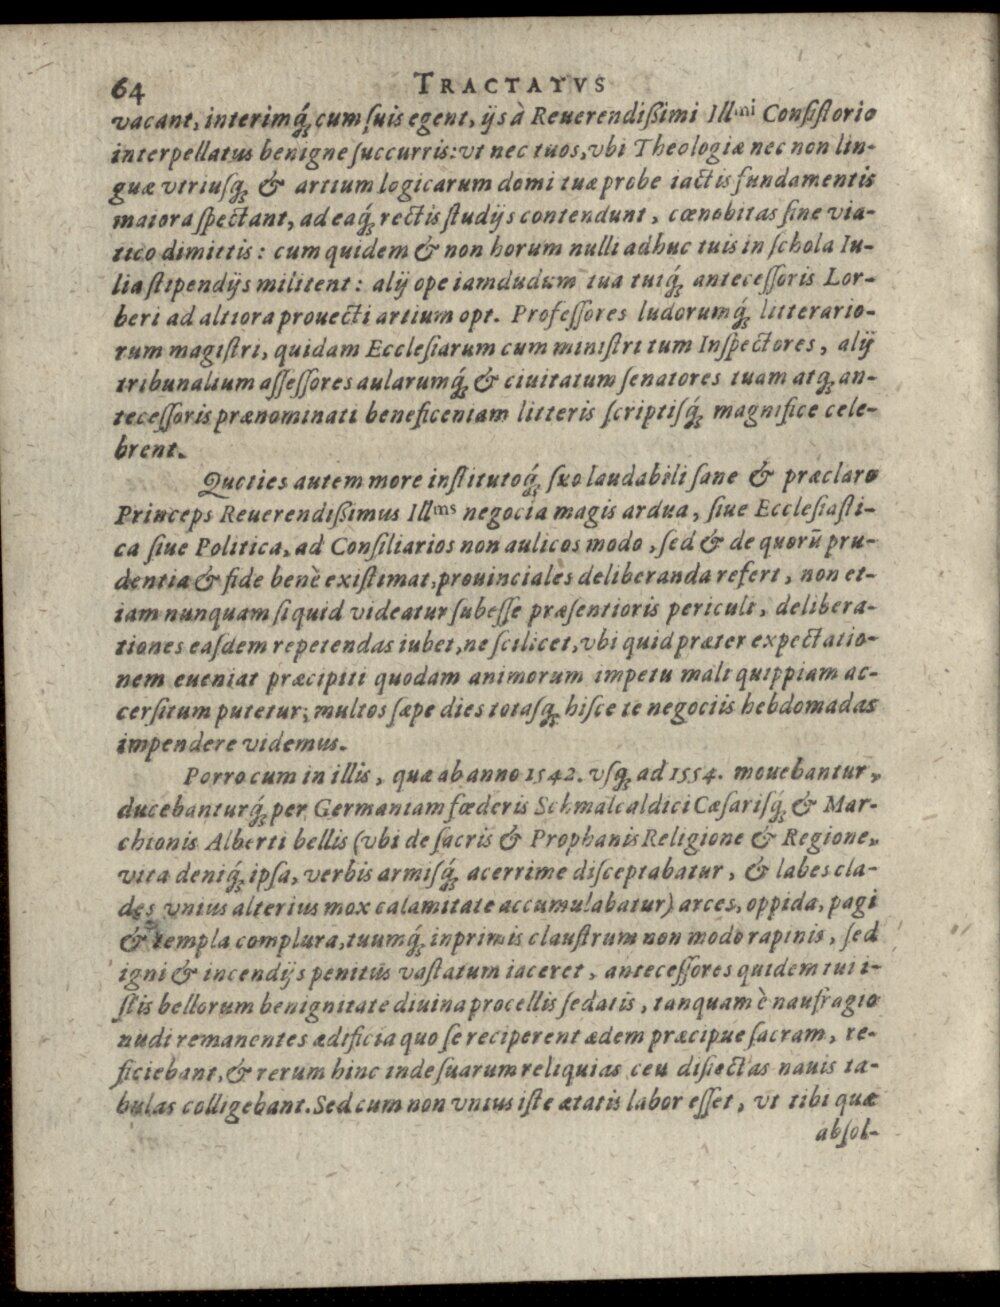 64 TRACTATVS
vacant, interimq́; cum ſuis egent, ijs à Reuerendißimi Illmi Conſiſtorio
interpellatus benigne ſuccurris: vt nec tuos, vbi Theologiæ nec non lin-
guæ vtriuſq; & artium logicarum domi tuæ probe iactis fundamentis
maiora ſpectant, ad eaq́; rectis ſtudijs contendunt, cœnobitas ſine via-
tico dimittis: cum quidem & non horum nulli adhuc tuis in ſchola Iu-
lia ſtipendijs militent: alij ope iamdudum tua tuiq́; anteceſſoris Lor-
beri ad altiora prouecti artium opt. Profeſſores ludorumq́; litterario-
rum magiſtri, quidam Eccleſiarum cum miniſtri tum Inſpectores, alij
tribunalium aſſeſſores aularumq́; & ciuitatum ſenatores tuam atq; an-
teceſſoris prænominati beneficentiam litteris ſcriptiſq́; magnifice cele-
brent.
Quoties autem more inſtitutoq́; ſuo laudabili ſane & præclaro
Princeps Reuerendißimus Illms negocia magis ardua, ſiue Eccleſiaſti-
ca ſiue Politica, ad Conſiliarios non aulicos modo, ſed & de quorū pru-
dentia & fide benè exiſtimat, prouinciales deliberanda refert, non et-
iam nunquam ſi quid videatur ſubeſſe præſentioris periculi, delibera-
tiones eaſdem repetendas iubet, ne ſcilicet, vbi quid præter expectatio-
nem eueniat præcipiti quodam animorum impetu mali quippiam ac-
cerſitum putetur; multos ſæpe dies totaſq; hiſce te negociis hebdomadas
impendere videmus.
Porro cum in illis, quæ ab anno 1542. vſq; ad 1554. mouebantur,
ducebanturq́; per Germaniam fœderis Schmalcaldici Cæſariſq́; & Mar-
chionis Alberti bellis (vbi de ſacris & Prophanis Religione & Regione,
vita deniq́; ipſa, verbis armiſq́; acerrime diſceptabatur, & labes cla-
des vnius alterius mox calamitate accumulabatur) arces, oppida, pagi
& templa complura, tuumq́; inprimis clauſtrum non modo rapinis, ſed
igni & incendijs penitus vaſtatum iaceret, anteceſſores quidem tui i-
ſtis bellorum benignitate diuina procellis ſedatis, tanquam è naufragio
nudi remanentes ædificia quo ſe reciperent ædem præcipue ſacram, re-
ficiebant, & rerum hinc inde ſuarum reliquias ceu diſiectas nauis ta-
bulas colligebant. Sed cum non vnius iſte ætatis labor eſſet, vt tibi quæ
abſol-